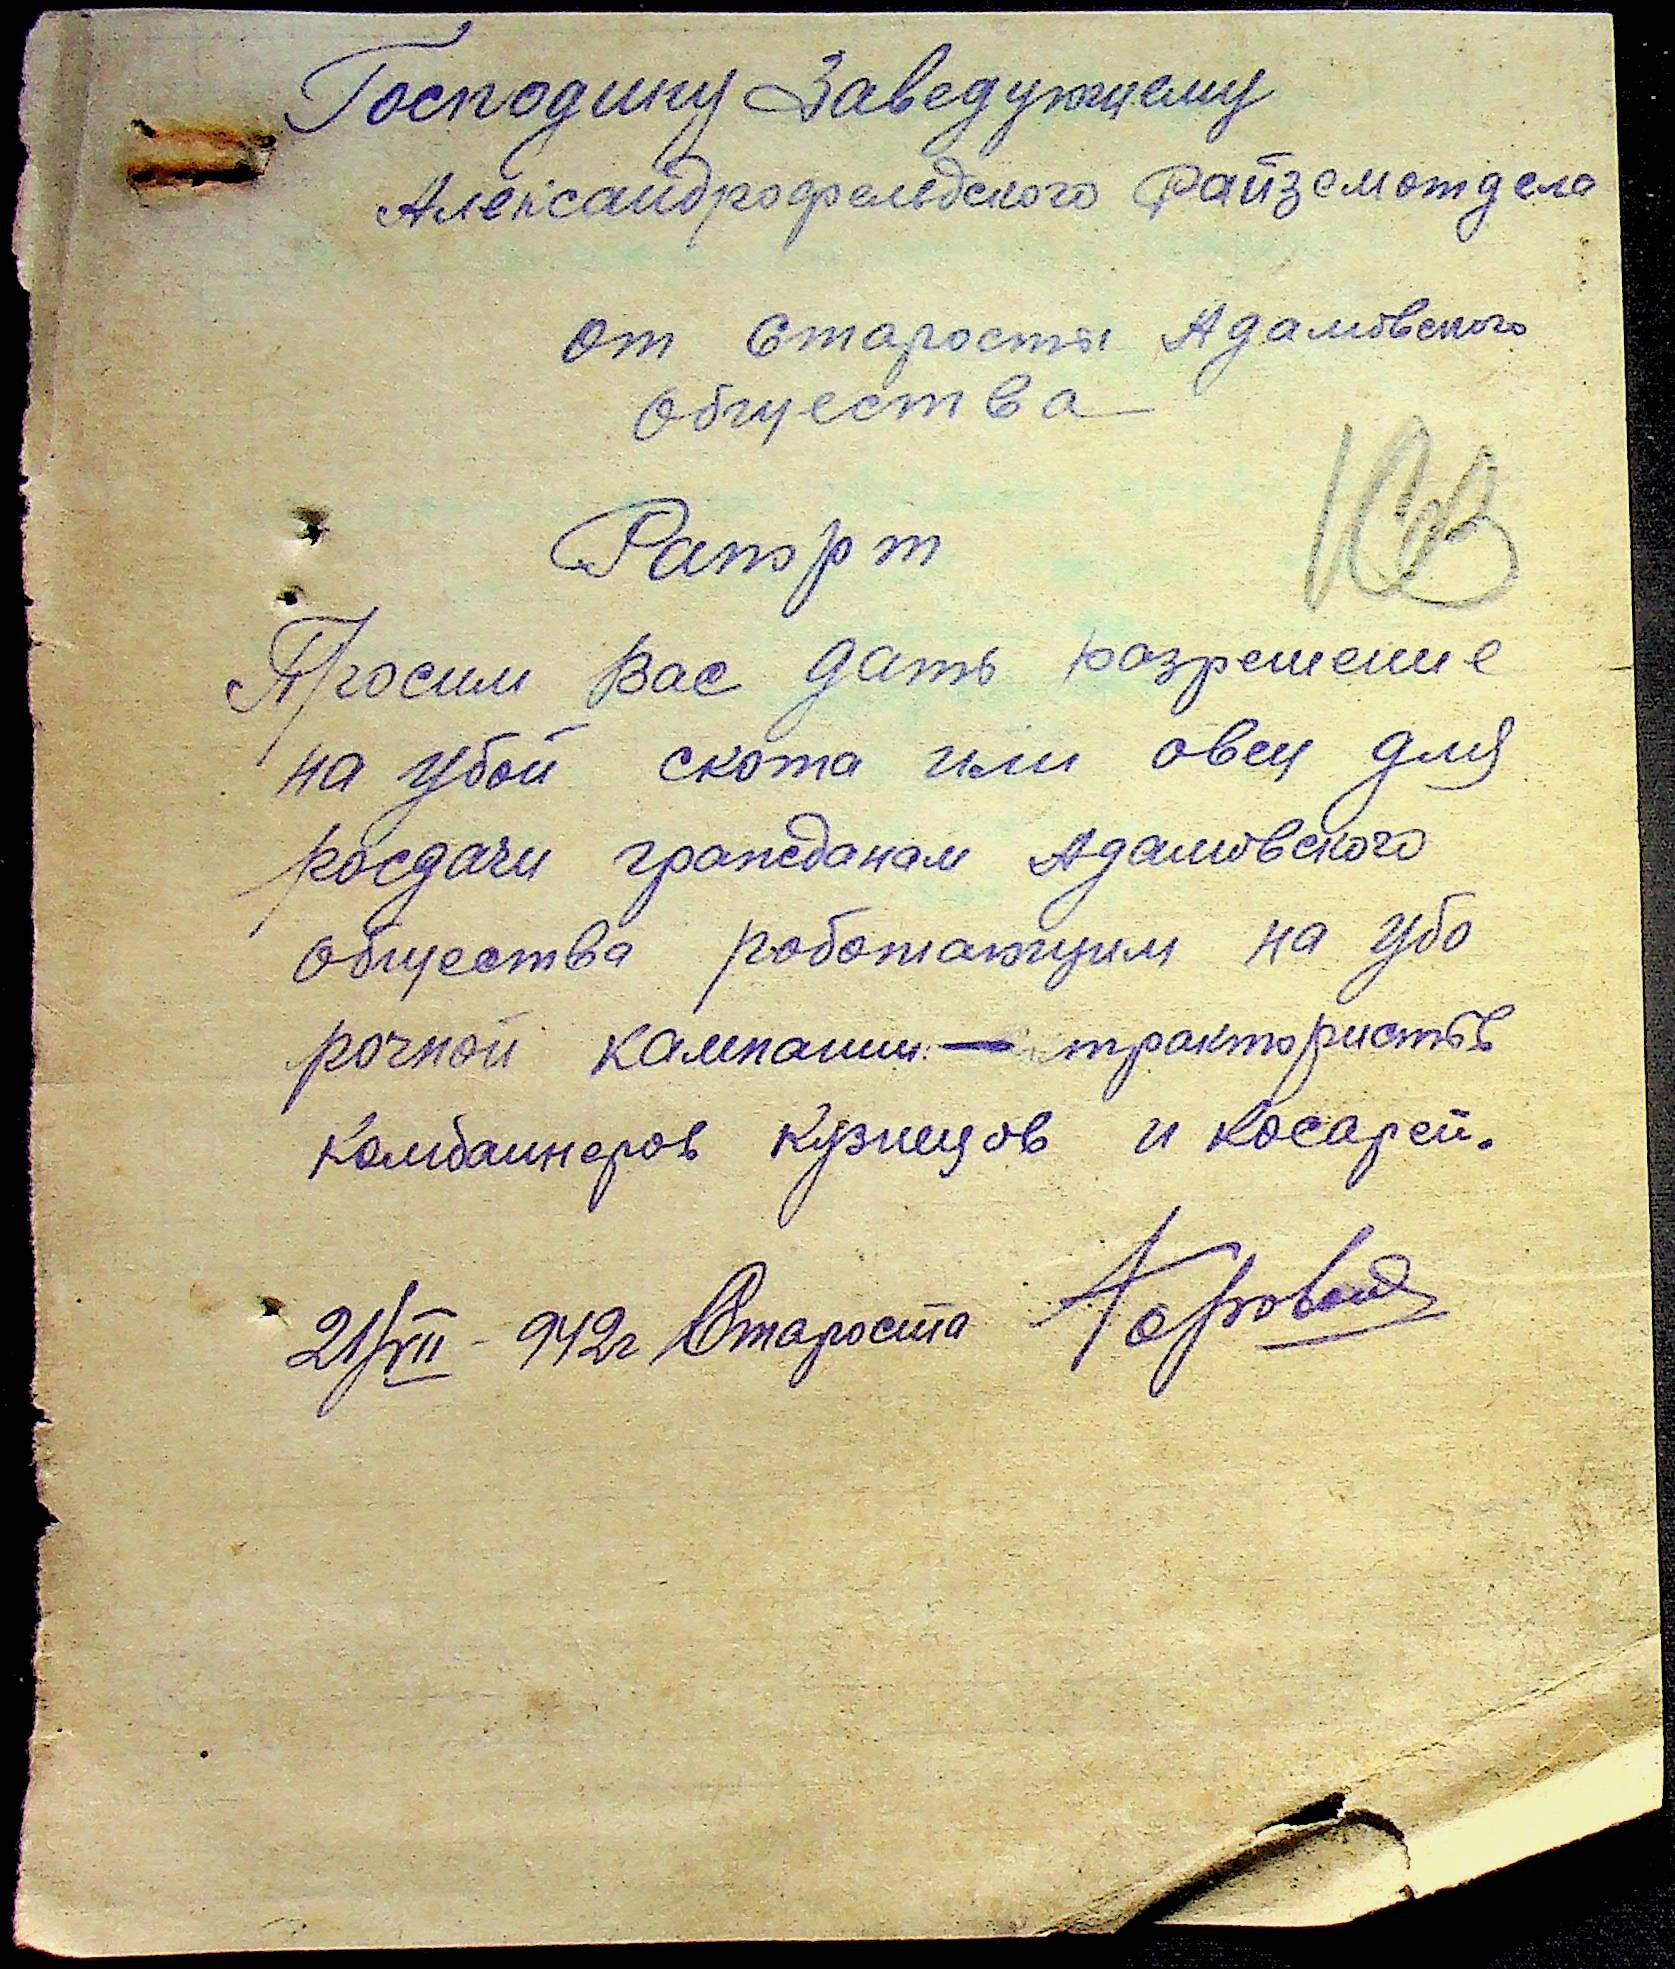 Господину Заведующему
Александрофельдского Райземотдела
от Старосты Адамовского
общества
Рапорт
Просим Вас дать разрешение
на убой скота или овец для
росдачи гражданам Адамовского
общества роботающим на убо
рочной кампании — трактористов
комбаинеров кузнецов и косарей.
21/VII - 942г Староста